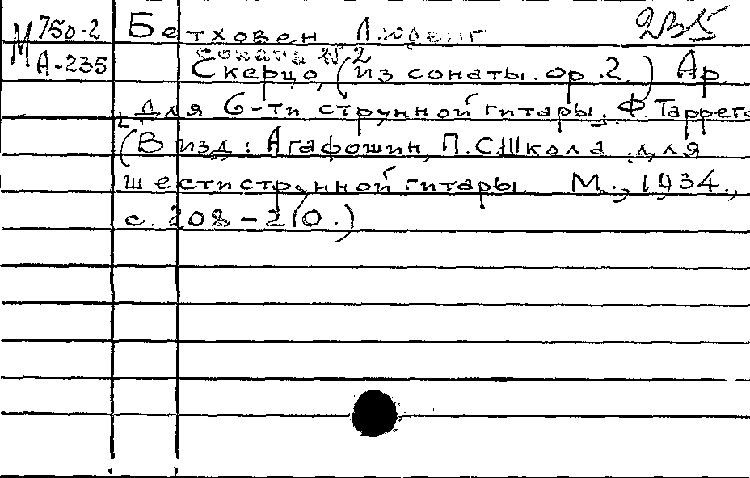 М 750-2 Бетховен Людвиг 235
А-235 Соната №2
Скерцо, (из сонаты ор. 2.) Ар.
для 6-ти струнной гитары, Ф. Таррега
(В изд: Агафошин, П.С. Школа для
шестиструнной гитары М., 1934.,
с. 208-210.)